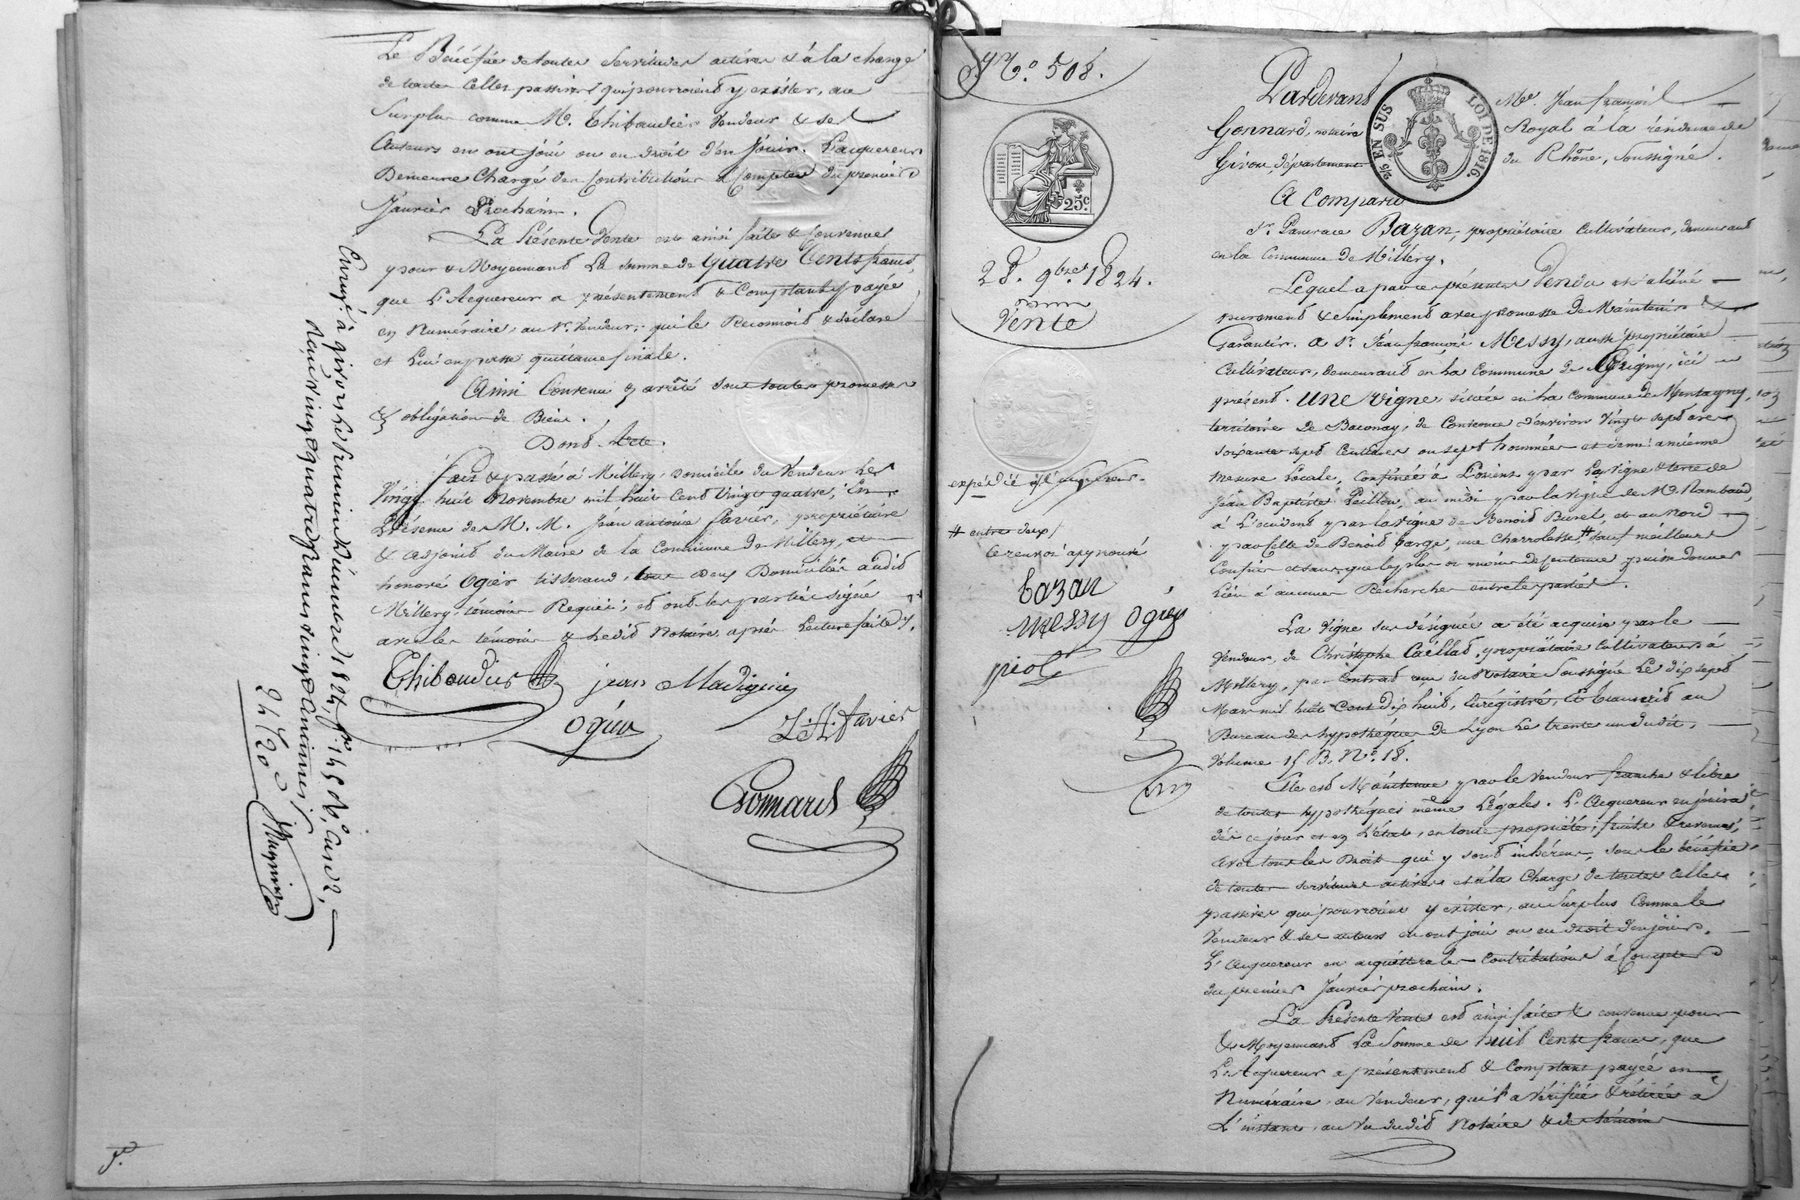 Le Bénéfice de toutes servitudes actives & à la charge
de toutes celles passives qui pourroient y exister, au
Surplus comme M. Thibaudier Vendeur & ses
Auteurs en ont joüi ou eu droit d'en joüir. L'acquereur
Demeure Chargé des Contributions à Compter du premier
Janvier Prochain.
La Présente Vente est ainsi faite & convenue
pour & Moyennant La Somme de Quatre Cents francs,
que L'Acquereur a présentement & Comptant payée
en Numéraire, au Sr. Vendeur, qui le Reconnoit & déclare
et Lui en passe quittance finale.
Ainsi Convenu & arrêté sous toutes promesses
& obligation de Biens.
Dont Acte.
Fait & passé à Millery, Domicile du Vendeur Le
Vingt huit Novembre mil huit Cent Vingt quatre, En
Présence de M. M. Jean antoine favier, propriétaire
& Adjoint du Maire de la Commune de Millery, et
honoré Ogier tisserand, tous Deux Domiciliés audit
Millery, témoins Requis; et ont les parties signé
avec les témoins & ledit Notaire après Lecture faite.
Thibaudier jean Madignier
ogier J. A. favier
Gonnard
Enregé. à givors le premier Décembre 1824, fo. 145 Vo. Cases 2,
Reçu vingt quatre francs vingt centimes
24 f 20 c
N.o 508.
25 c
28. 9bre 1824.
Vente
expédié à l'acquéreur.
# entre deux /
le renvoi approuvé
bazan
messy ogier
piot
5/10 EN SUS LOI DE 1816.
Pardevant Me. Jean françois
Gonnard, notaire Royal à la résidence de
Givors, département du Rhône, Soussigné.
A Comparu
Sr. Pancrace Bazan, propriétaire cultivateur, demeurant
en la Commune de Millery.
Lequel a par ces présentes Vendu et aliéné
purement & simplement avec promesse de Maintenir &
Garantir. A Sr. Jean françois Messy, aussi propriétaire
Cultivateur, demeurant en la Commune de Grigny, ici
présent. une vigne située en la Commune de Montagny,
territoire De Baconay, de Contenue d'environ Vingt sept ares
soixante sept Centiares ou sept hommées et demi ancienne
mesure Locale, Confinée à L'orient par La Vigne & terre de
Jean Baptiste Peillon, au midi par la Vigne de M. Rambaud,
à L'occident par la Vigne de Benoit Burel, et au Nord
par Celle de Benoit barge, une Charrolette # Sauf meilleurs
Confins et sans que le plus ou moins de Contenue puisse donner
Lieu à aucune Recherche entre les parties.
La Vigne sus désignée a été acquise par le
Vendeur, de Christophe Caillat, propriétaire Cultivateur à
Millery, par Contrat reçu du Notaire Soussigné Le dix sept
Mars mil huit Cent Dix huit, Enrégistré, Et transcrit au
Bureau des hypothèques de Lyon Le trente un dudit,
Volume 15 B. No. 18.
Elle est Maintenue par le Vendeur franche & libre
de toutes hypothèques même Légales. L'Acquereur en jouira
dès ce jour et en L'état, en toute propriété, fruits & revenus,
avec tous les Droits qui y sont inhérens, sous le bénéfice
de toutes servitudes actives et à la Charge de toutes celles
passives qui pourroient y exister, au Surplus Comme le
Vendeur & ses auteurs en ont joui ou eu droit d'en jouir.
L'Acquereur en acquittera les Contributions à Compter
du premier Janvier prochain.
La Présente Vente est ainsi faite & convenue pour
& Moyennant La Somme de huit Cents francs, que
L'Acquereur a présentement & Comptant payée en
Numéraire au Vendeur, qui l'a Vérifiée & retirée à
L'instant, au Vu dudit Notaire & des témoins